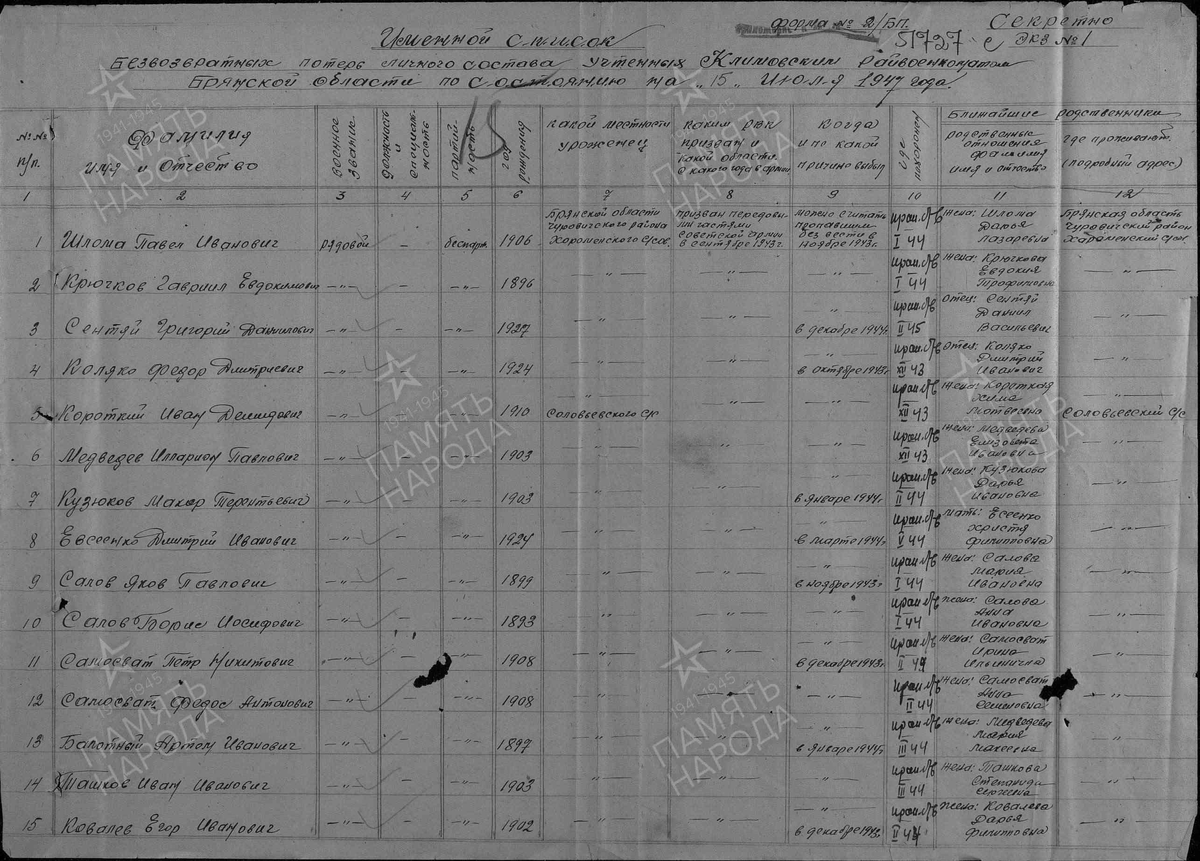 Форма № 2/БП.
Секретно
51727 с
Экз №1
Именной список
Безвозвратных потерь личного состава учтенных Климовским райвоенкоматом
Брянской области по состоянию на "15" июля 1947 года.
№№ п/п.
Фамилия имя и отчество
военное звание
должность и специальность
партийность
год рождения
какой местности уроженец
каким РВК призван и какой области с какого года в армии
когда и по какой причине выбыл
где похоронен
Ближайшие родственники
родственные отношения фамилия имя и отчество
где проживают (подробный адрес)
1 2 3 4 5 6 7 8 9 10 11 12
1 Шлома Павел Иванович рядовой — беспарт. 1906 Брянской области Чуровичского района Хороменского с/сов. призван передовыми частями Советской армии в сентябре 1943г. можно считать пропавшим без вести в ноябре 1943г. I 44 жена: Шлома Дарья Лазаревна Брянская область Чуровичский район Хароменский с/сов
2 Крючков Гавриил Евдокимович —"— — —"— 1896 —"— —"— —"— I 44 жена: Крючкова Евдокия Трофимовна —"—
3 Сентяй Григорий Даниилович —"— — —"— 1927 —"— —"— " в декабре 1944г. II 45 Отец: Сентяй Даниил Васильевич —"—
4 Коляко Федор Дмитриевич —"— — —"— 1924 —"— —"— " в октябре 1943г XII 43 отец: Коляко Дмитрий Иванович —"—
5 Короткий Иван Демидович —"— — —"— 1910 " Соловьевского с/с —"— —"— XII 43 жена: Короткая Хима Мотвеевна " Соловьевский с/с
6 Медведев Илларион Павлович —"— — —"— 1903 —"— —"— —"— XII 43 жена: Медведева Елизовета Ивановна —"—
7 Кузюков Макар Терентьевич —"— — —"— 1903 —"— —"— " в январе 1944г. II 44 жена: Кузюкова Дарья Ивановна —"—
8 Евсеенко Дмитрий Иванович —"— — —"— 1924 —"— —"— " в марте 1944г. 44 мать: Есеенко Христя Филипповна —"—
9 Салов Яков Павлович —"— — —"— 1899 —"— —"— " в ноябре 1943г I 44 жена: Салова Мария Ивановна —"—
10 Салов Борис Иосифович —"— — —"— 1893 —"— —"— —"— I 44 жена: Салова Анна Ивановна —"—
11 Самосват Петр Никитович —"— — —"— 1908 —"— —"— " в декабре 1943г. II 44 жена: Самосват Ирина Ильинична —"—
12 Самосват Федос Антонович —"— — —"— 1908 —"— —"— —"— II 44 жена: Самосват Анна Семеновна —"—
13 Балотный Артом Иванович —"— — —"— 1897 —"— —"— " в январе 1944г. III 44 жена: Медведева Мария Макеевна —"—
14 Ташков Иван Иванович —"— — —"— 1903 —"— —"— —"— III 44 жена: Ташкова Степанида —"—
15 Ковалев Егор Иванович —"— — —"— 1902 —"— —"— " в декабре 1943г. II 44 жена: Ковалева Дарья Филипповна —"—
1941-1945
ПАМЯТЬ НАРОДА